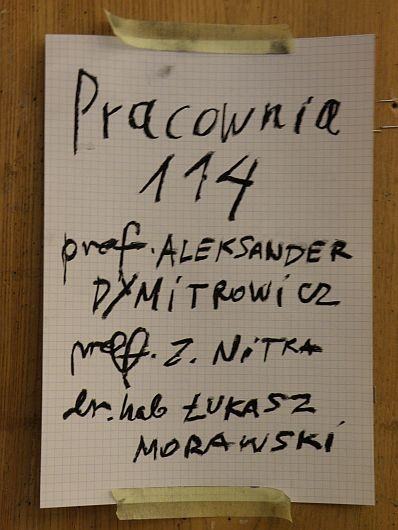 Pracownia
114
prof. ALEKSANDER
DYMITROWICZ
prof. Z. NITKA
dr. hab ŁUKASZ
MORAWSKI